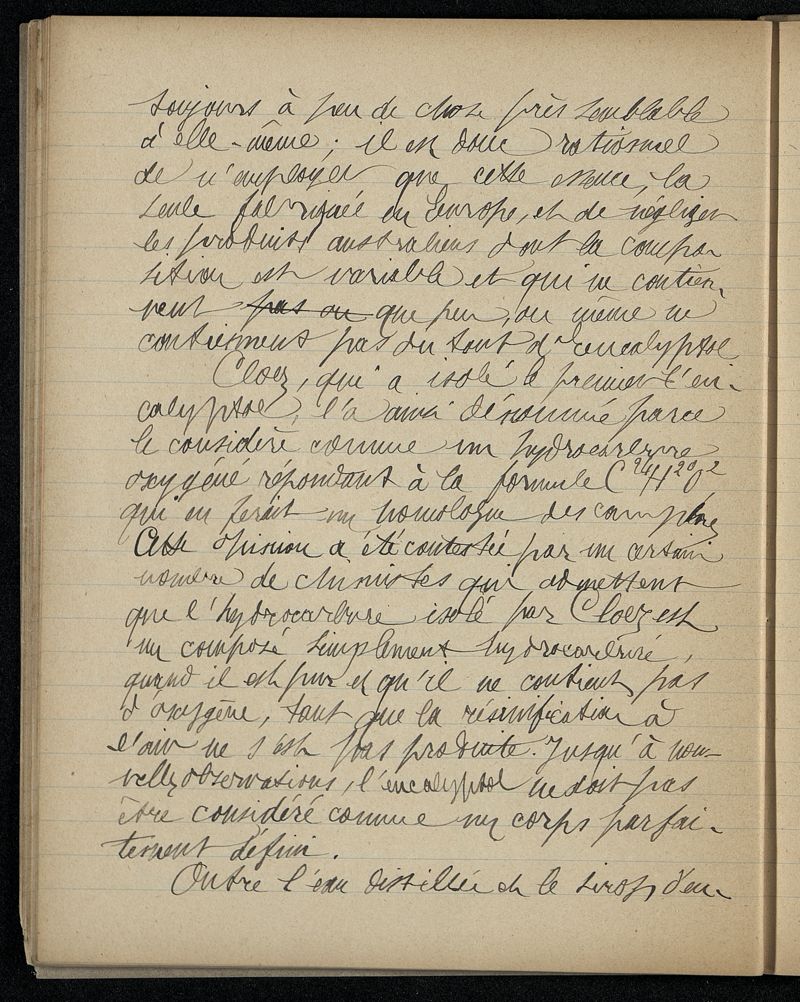 toujours à peu de chose près semblable
à elle-même ; il est donc rationnel
de n'employer que cette essence, la
seule fabriquée en Europe, et de négliger
les produits australiens dont la compo-
sition est variable et qui ne contien-
nent pas ou que peu, ou même ne
contiennent pas du tout d'eucalyptol
Cloez, qui a isolé le premier l'eu-
calyptol, l'a ainsi dénommé parce
le considère comme un hydrocarbure
oxygéné répondant à la formule C²⁴H²⁰O²
qui en ferait un homologue des camphres
Cette opinion a été contestée par un certain
nombre de chimistes qui admettent
que l'hydrocarbure isolé par Cloez est
un composé simplement hydrocarburé,
quand il est pur et qu'il ne contient pas
d'oxygène, tant que la résinification à
l'air ne s'est pas produite. Jusqu'à nou-
velles observations, l'eucalyptol ne doit pas
être considéré comme un corps parfai-
tement défini.
Outre l'eau distillée et le sirop d'eu-